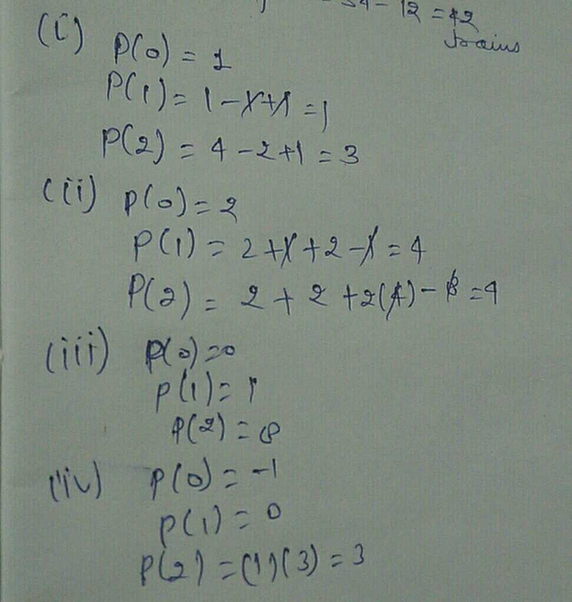 54 - 12 = 42
trains
(i) P(0) = 1
P(1) = 1 - 1 + 1 = 1
P(2) = 4 - 2 + 1 = 3
(ii) P(0) = 2
P(1) = 2 + 1 + 2 - 1 = 4
P(2) = 2 + 2 + 2(4) - 8 = 4
(iii) P(0) = 0
P(1) = 1
P(2) = 8
(iv) P(0) = -1
P(1) = 0
P(2) = (1)(3) = 3